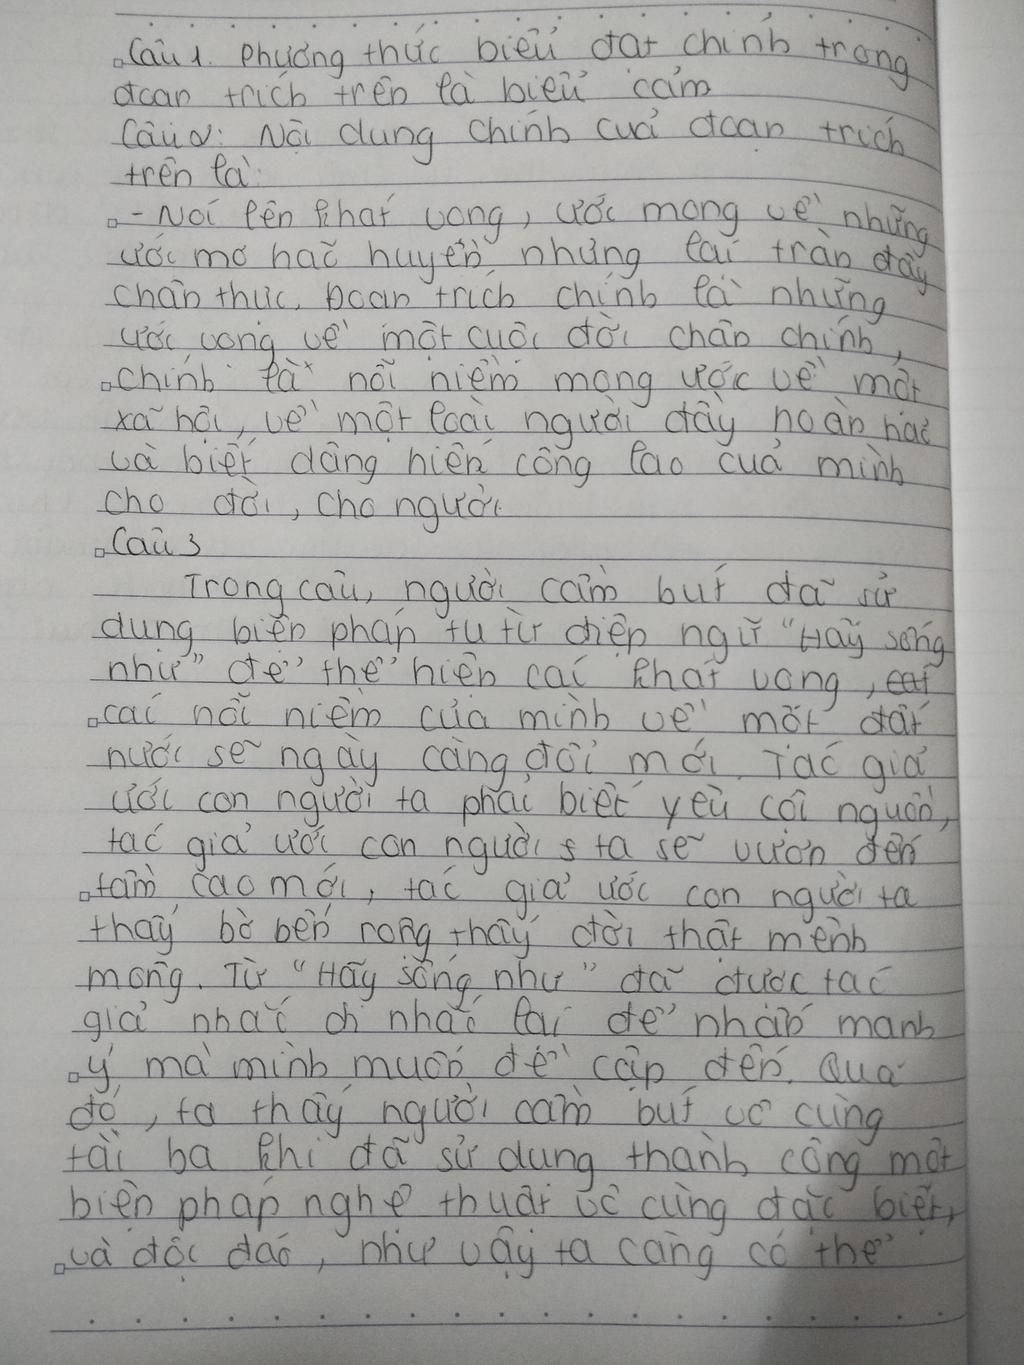 Câu 1. Phương thức biểu đạt chính trong
đoạn trích trên là biểu cảm
Câu 2: Nội dung chính của đoạn trích
trên là:
- Nói lên khát vọng, ước mong về những
ước mơ hắc huyền nhưng lại tràn đầy
chân thực. Đoạn trích chính là những
ước vọng về một cuộc đời chân chính,
chính là nỗi niềm mong ước về một
xã hội, về một loài người đầy hoàn hảo
và biết dâng hiến công lao của mình
cho đời, cho người.
Câu 3
Trong câu, người cầm bút đã sử
dụng biện pháp tu từ điệp ngữ "Hãy sống
như" để thể hiện cái khát vọng,
cái nỗi niềm của mình về một đất
nước sẽ ngày càng đổi mới. Tác giả
ước con người ta phải biết yêu cội nguồn,
tác giả ước con người ta sẽ vươn đến
tầm cao mới, tác giả ước con người ta
thấy bờ bến rộng thấy đời thật mênh
mông. Từ "Hãy sống như" đã được tác
giả nhắc đi nhắc lại để nhấn mạnh
ý mà mình muốn đề cập đến. Qua
đó, ta thấy người cầm bút vô cùng
tài ba khi đã sử dụng thành công một
biện pháp nghệ thuật vô cùng đặc biệt,
và độc đáo, như vậy ta càng có thể